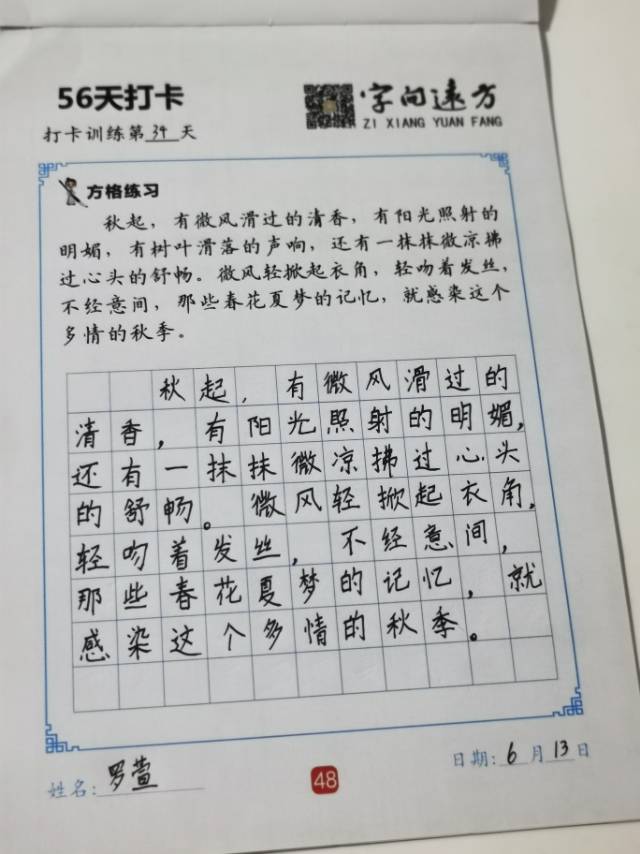 56天打卡
字向远方
打卡训练第39天
ZI XIANG YUAN FANG
方格练习
秋起，有微风滑过的清香，有阳光照射的
明媚，有树叶滑落的声响，还有一抹抹微凉拂
过心头的舒畅。微风轻掀起衣角，轻吻着发丝，
不经意间，那些春花夏梦的记忆，就感染这个
多情的秋季。
秋起，有微风滑过的
清香，有阳光照射的明媚，
还有一抹抹微凉拂过心头
的舒畅。微风轻掀起衣角，
轻吻着发丝，不经意间，
那些春花夏梦的记忆，就
感染这个多情的秋季。
姓名：罗萱
48
日期：6月13日